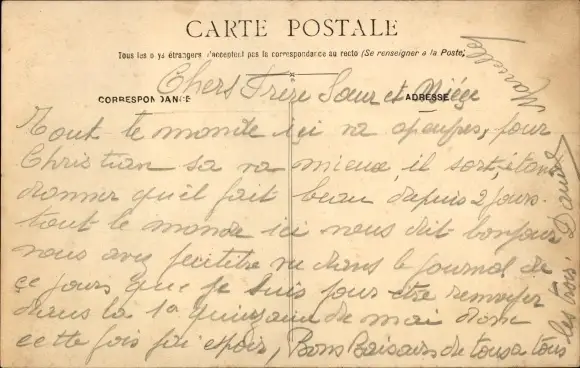 CARTE POSTALE
Tous les pays étrangers n'acceptent pas la correspondance au recto (Se renseigner à la Poste)
CORRESPONDANCE
ADRESSE
Chers Frère Sœur et Nièce
Tout le monde ici va apeuprés, pour
Christian sa va mieux, il sort, étant
donner qu'il fait beau depuis 2 jours.
tout le monde ici vous dit bonjour
vous avez peutitre vu dans le journal de
ce jours que je suis pour être
dans la 1e quinzaine de mai donc
cette fois j'ai espoir, Bons Baisers de tous a tous
les trois! Daniel
Marcelle